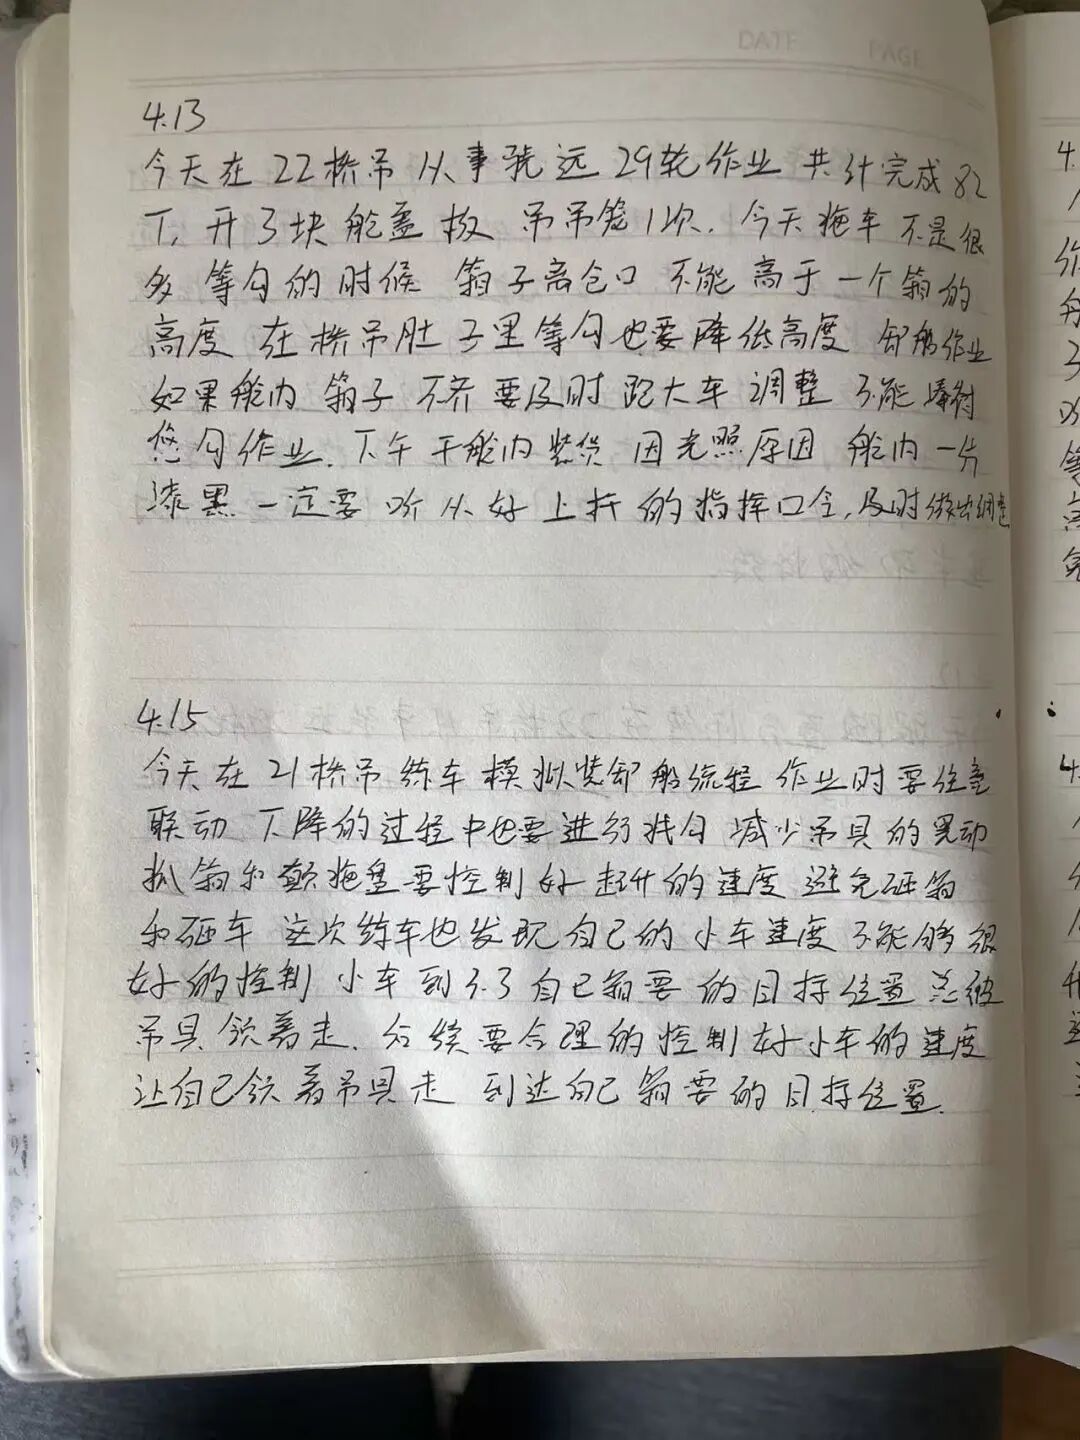 DATE PAGE
4.13
今天在22桥吊从事虢远29轮作业 共计完成82
T, 开3块舱盖板 吊吊笼1次. 今天拖车不是很
多 等勾的时候 箱子离仓口 不能高于一个箱的
高度 在桥吊肚子里等勾也要降低高度 卸船作业
如果舱内 箱子 不齐要及时 跑大车 调整 不能
悠勾作业. 下午干舱内装货 因光照原因 舱内一片
漆黑 一定要听从好上折的指挥口令,及时做出调整
4.15
今天在21桥吊 练车 模拟装卸船流程 作业时要注意
联动 下降的过程中也要进行找勾 减少吊具的晃动
抓箱和颠拖盘要控制好起升的速度 避免砸箱
和砸车 这次练车也发现自己的小车速度 不能够很
好的控制 小车到不了自己箱要的目标位置 总被
吊具领着走. 后续要合理的控制好小车的速度
让自己领着吊具走 到达自己箱要的目标位置.